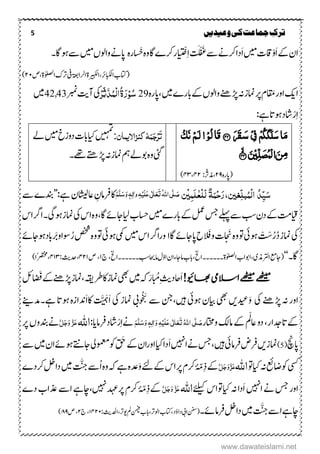 ترکِ جماعت کی وعیدیں 5
ان کے اوقات میں ادا کرنے سے غفلت اختیار کرے گا وہ خسارہ پانے والوں میں سے ہو گا۔
(کتاب الکبائر، الکبیرۃ الرابعۃ فی ترک الصلوۃ، ص ۲۰)
ایک اور مقام پر نماز نہ پڑھنے والوں کے بارے میں، پارہ 29 سُوْرَۃُ الْمُدَّثِّر کی آیت نمبر 42,43 میں
ارشاد ہوتا ہے:
مَا سَلَكَكُمْ فِیْ سَقَرَ ۝ قَالُوْا لَمْ نَكُ
مِنَ الْمُصَلِّیْنَ ۝
(پارہ ۲۹، مدثر: ۴۲، ۴۳)
ترجمۂ کنز الایمان: تمہیں کیا بات دوزخ میں لے
گئی وہ بولے ہم نماز نہ پڑھتے تھے۔
سَیِّدُ الْمُبَلِّغِیْن، رَحْمَۃٌ لِّلْعٰلَمِیْن صَلَّی اللہُ تَعَالٰی عَلَیْہِ وَاٰلِہٖ وَسَلَّم کا فرمانِ عالیشان ہے: ”بندے سے
قیامت کے دن سب سے پہلے جس عمل کے بارے میں حساب لیا جائے گا، وہ اس کی نماز ہو گی۔ اگر اس
کی نماز دُرُست ہوئی تو وہ نجات و فلاح پا جائے گا اور اگر اس میں کمی ہوئی تو وہ شخص رُسوا و برباد ہو جائے
گا۔“
میٹھے میٹھے اسلامی بھائیو! احادیثِ مُبارَکہ میں جہاں نماز کی، بطریقِ اَحسن نماز پڑھنے کے فضائل
اور نہ پڑھنے کی وعیدیں بھی بیان ہوئی ہیں، جن سے بخوبی نماز کی اَہمیَّت کا اندازہ ہوتا ہے۔ مدینے
کے تاجدار، دو عالم کے مالک و مختار صَلَّی اللہُ تَعَالٰی عَلَیْہِ وَاٰلِہٖ وَسَلَّم نے ارشاد فرمایا: اللہ عَزَّوَجَلَّ نے بندوں پر
پانچ (5) نمازیں فرض فرمائیں، جس نے انہیں ادا کیا اور ان کے حق کو معمولی جانتے ہوئے ان میں سے
کسی کو ضائع نہ کیا تو اللہ عَزَّوَجَلَّ کے ذِمَّۂ کرم پر اس کے لئے وعدہ ہے کہ وہ اُسے جنّت میں داخل کر دے
اور جس نے انہیں ادا نہ کیا تو اس کیلئے اللہ عَزَّوَجَلَّ کے ذِمَّۂ کرم پر عہد نہیں، چاہے اسے عذاب دے
چاہے اسے جنّت میں داخل فرمائے۔
www.dawateislami.net